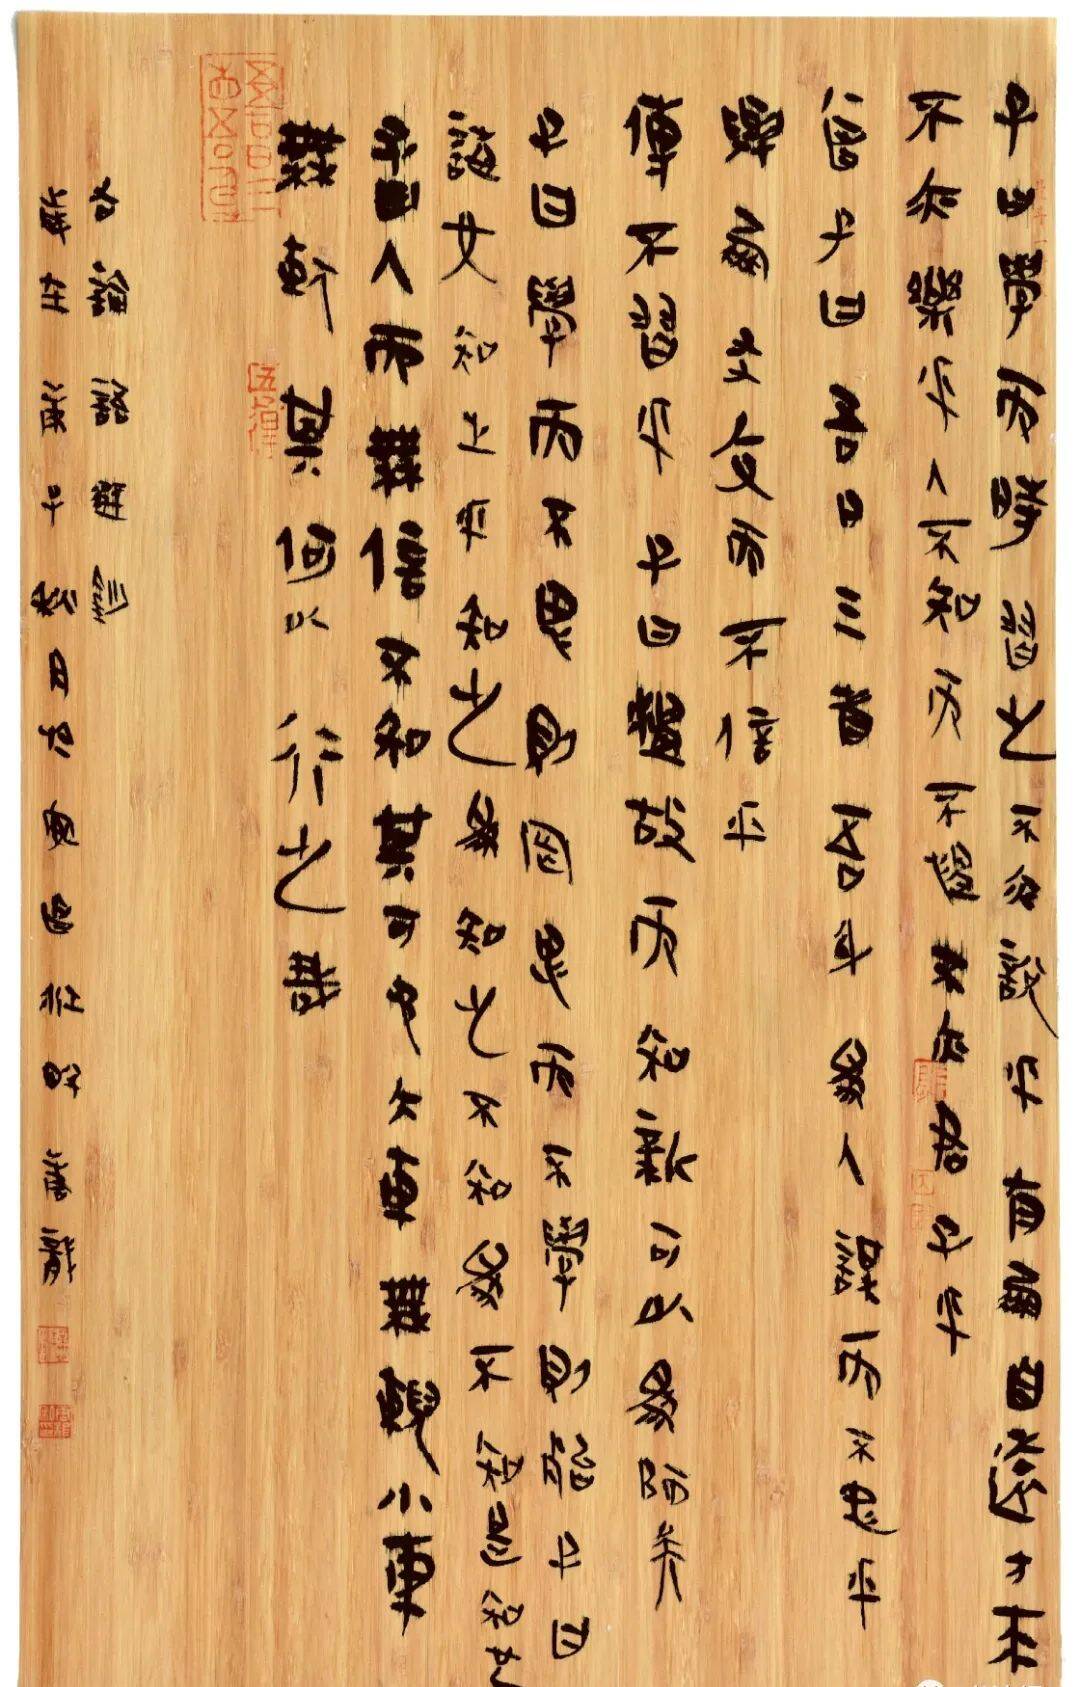 子曰學而時習之不亦說乎有朋自遠方來
不亦樂乎人不知而不慍不亦君子乎
曾子曰吾日三省吾身為人謀而不忠乎
與朋友交而不信乎
傳不習乎子曰溫故而知新可以為師矣
子曰學而不思則罔思而不學則殆子曰
誨女知之乎知之為知之不知為不知是知也
子曰人而無信不知其可也大車無輗小車
無軏其何以行之哉
右論語選句
歲在庚子秋月於